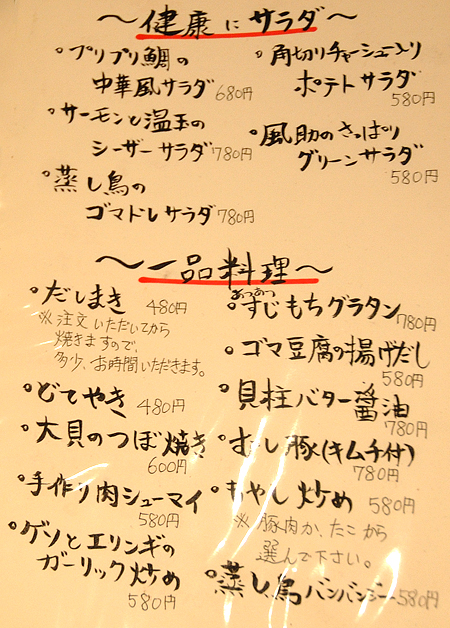 〜健康にサラダ〜
・プリプリ鯛の
中華風サラダ 680円
・サーモンと温玉の
シーザーサラダ 780円
・蒸し鳥の
ゴマドレサラダ 780円
・角切りチャーシュー入り
ポテトサラダ
580円
・風助のさっぱり
グリーンサラダ
580円
〜一品料理〜
・だしまき 480円
※注文いただいてから
焼きますので、
多少、お時間いただきます。
・どてやき 480円
・大貝のつぼ焼き
600円
・手作り肉シューマイ
580円
・ゲソとエリンギの
ガーリック炒め
580円
あつあつ
・すじもちグラタン
780円
・ゴマ豆腐の揚げだし
580円
・貝柱バター醤油
780円
・むし豚(キムチ付)
780円
・もやし炒め 580円
※豚肉か、たこから
選んで下さい。
・蒸し鳥バンバンジー 580円